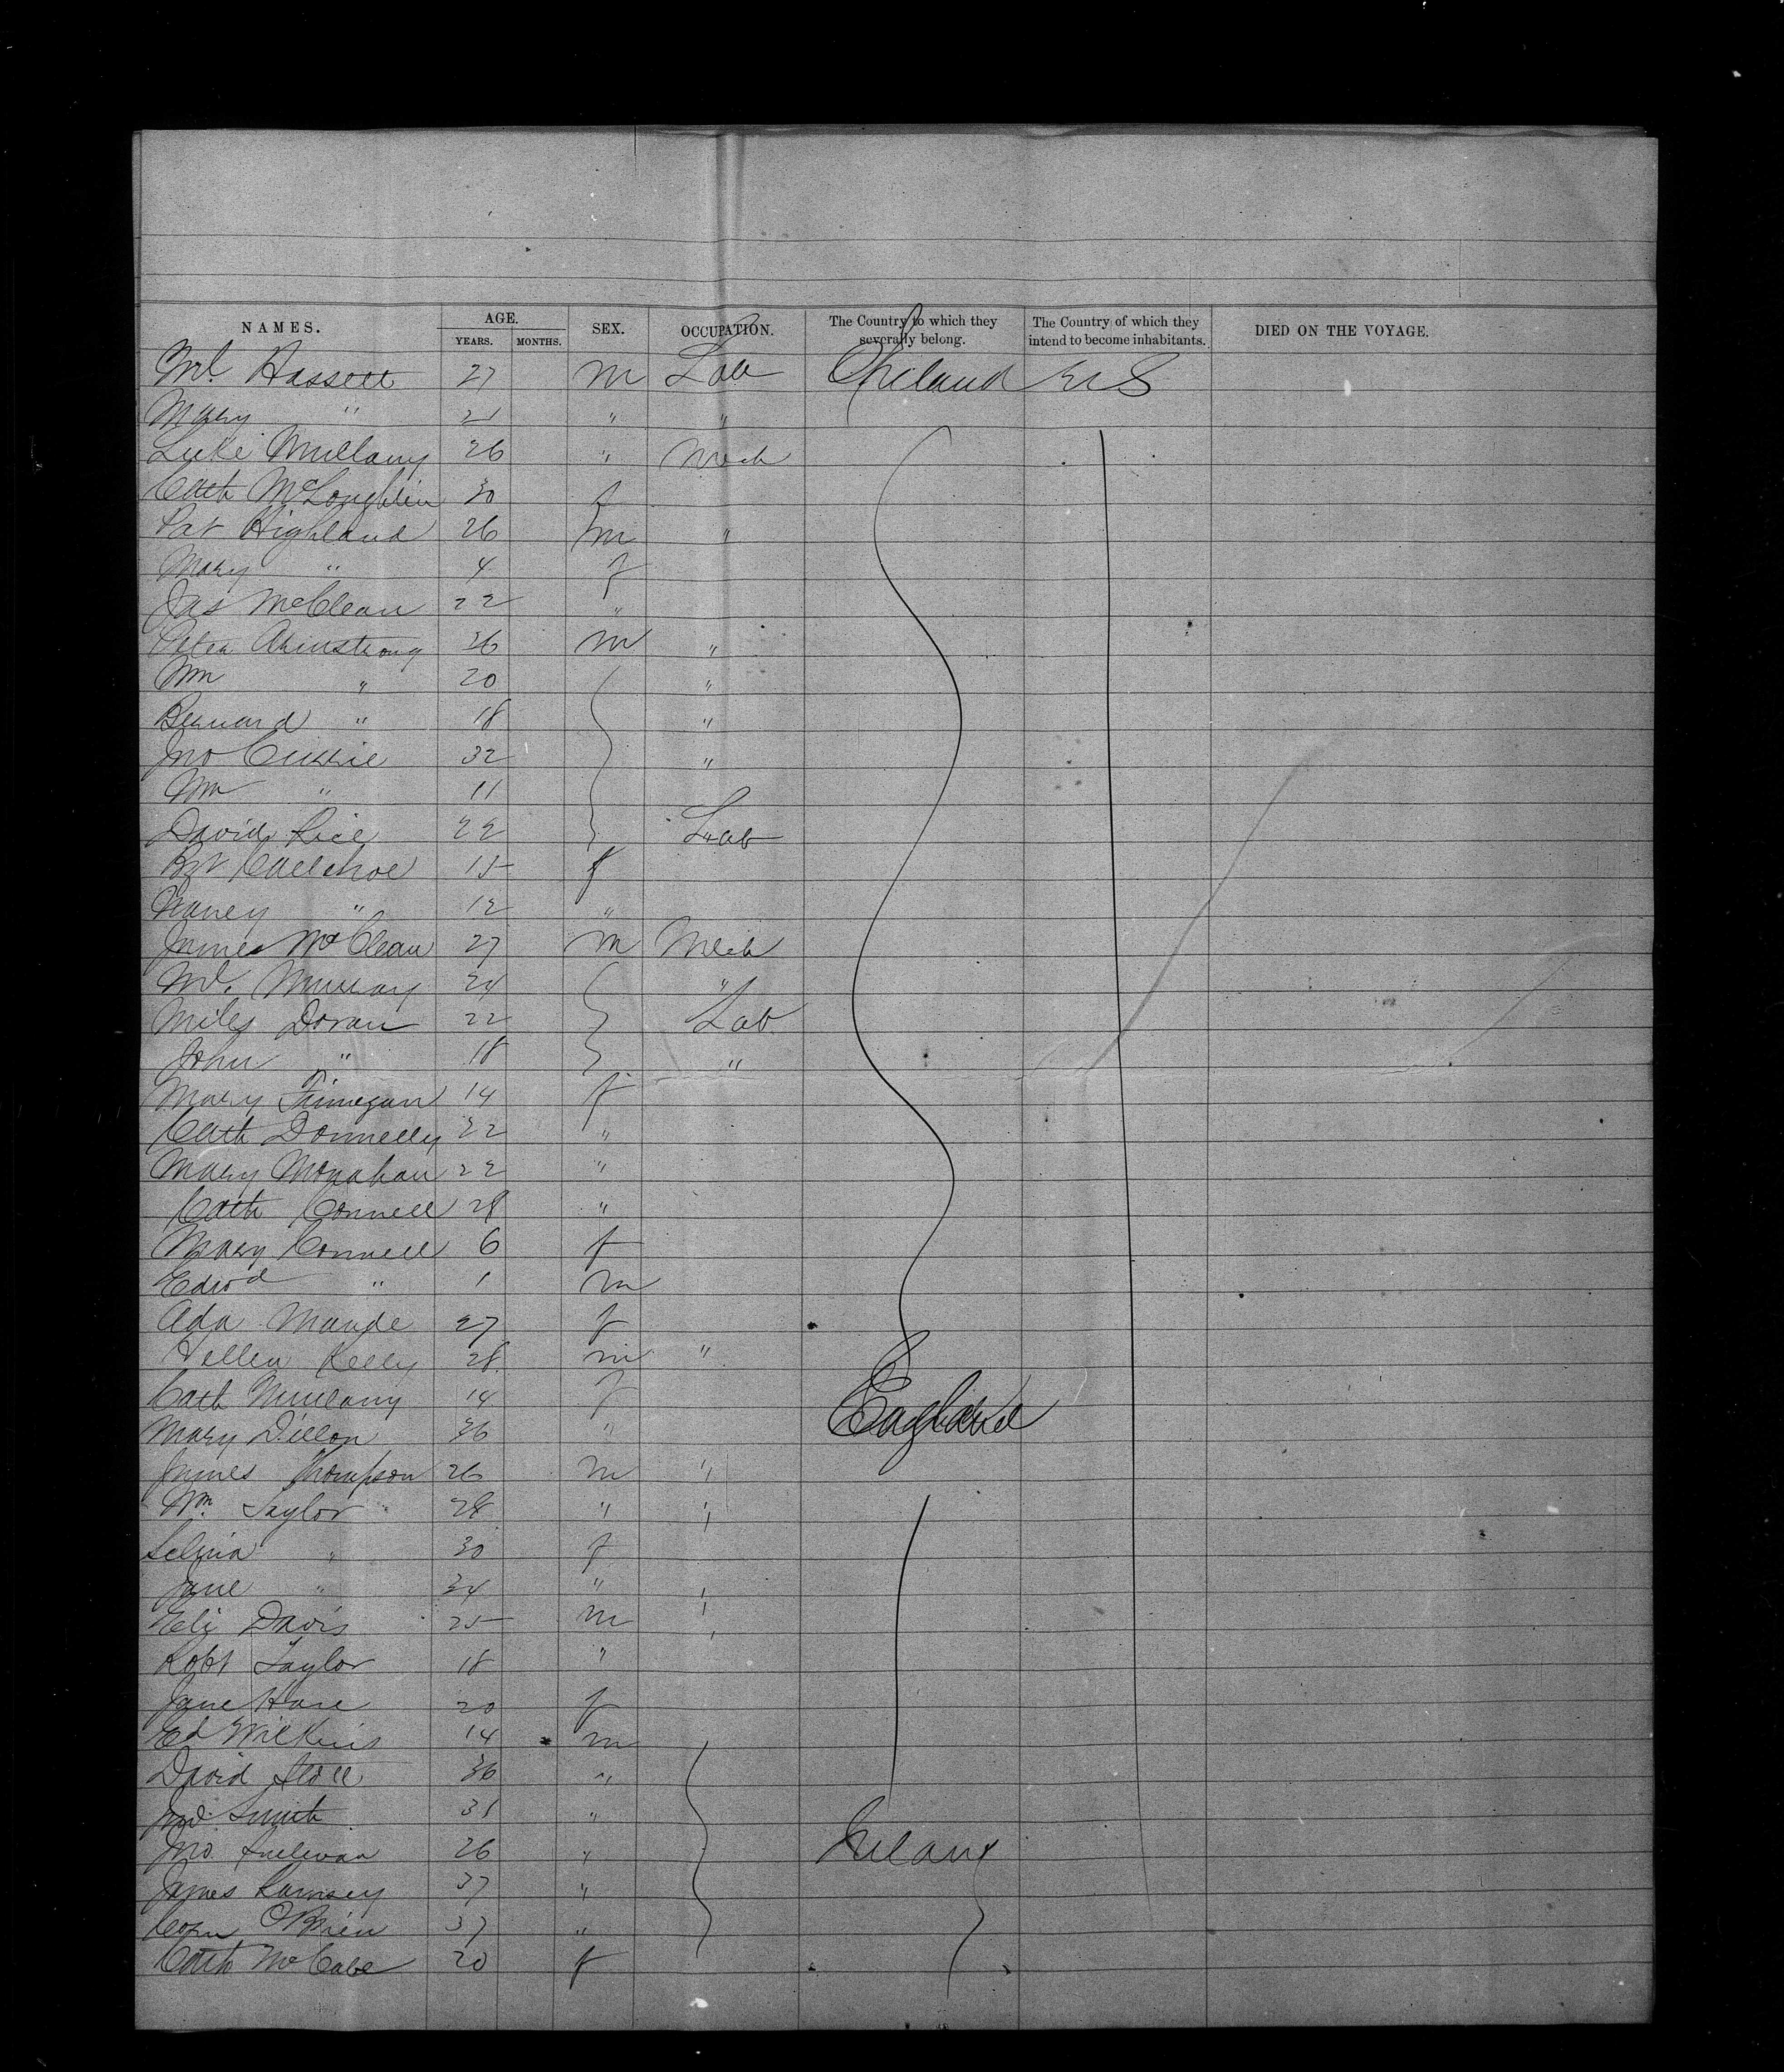 NAMES. AGE. SEX. OCCUPATION. The Country to which they severally belong. The Country of which they intend to become inhabitants. DIED ON THE VOYAGE.
YEARS. MONTHS.
Ml. Hassett 27 m Lab Ireland U S
Mary " 21 " "
Luke Mullany 26 " Mech
Cath McLoughlin 30 f
Pat Highland 26 m "
Mary " 4 f
Jas McClean 22 "
Peter Armstrong 36 m "
Wm " 20 "
Bernard " 18 "
Jno Currie 32 "
Wm " 11
David Rice 22 Lab
Bgt 15 f
Nancy " 12 "
James McClean 27 m Mech
Ml. Murray 24 "
Miles Doran 22 Lab
John " 18 "
Mary Finnegan 14 f
Cath Donnelly 22 "
Mary Monahan 22 "
Cath Connell 28 "
Mary Connell 6 f
Edwd " 1 m
Ada Maude 27 f
Hellen Kelly 28 m "
Cath Mullany 14 f England
Mary Dillon 36 "
James Thompson 26 m "
Wm. Taylor 28 " "
Selina " 30 f
Jane " 34 " "
Eli Davis 25 m "
Robt Taylor 18 "
Jane Hare 20 f
Ed Wilkins 14 m
David 36 "
Smith 31 "
Jno. Sullivan 26 " Ireland
James Ramsey 37 "
Corn O'Brien 37 "
Cath McCabe 20 f